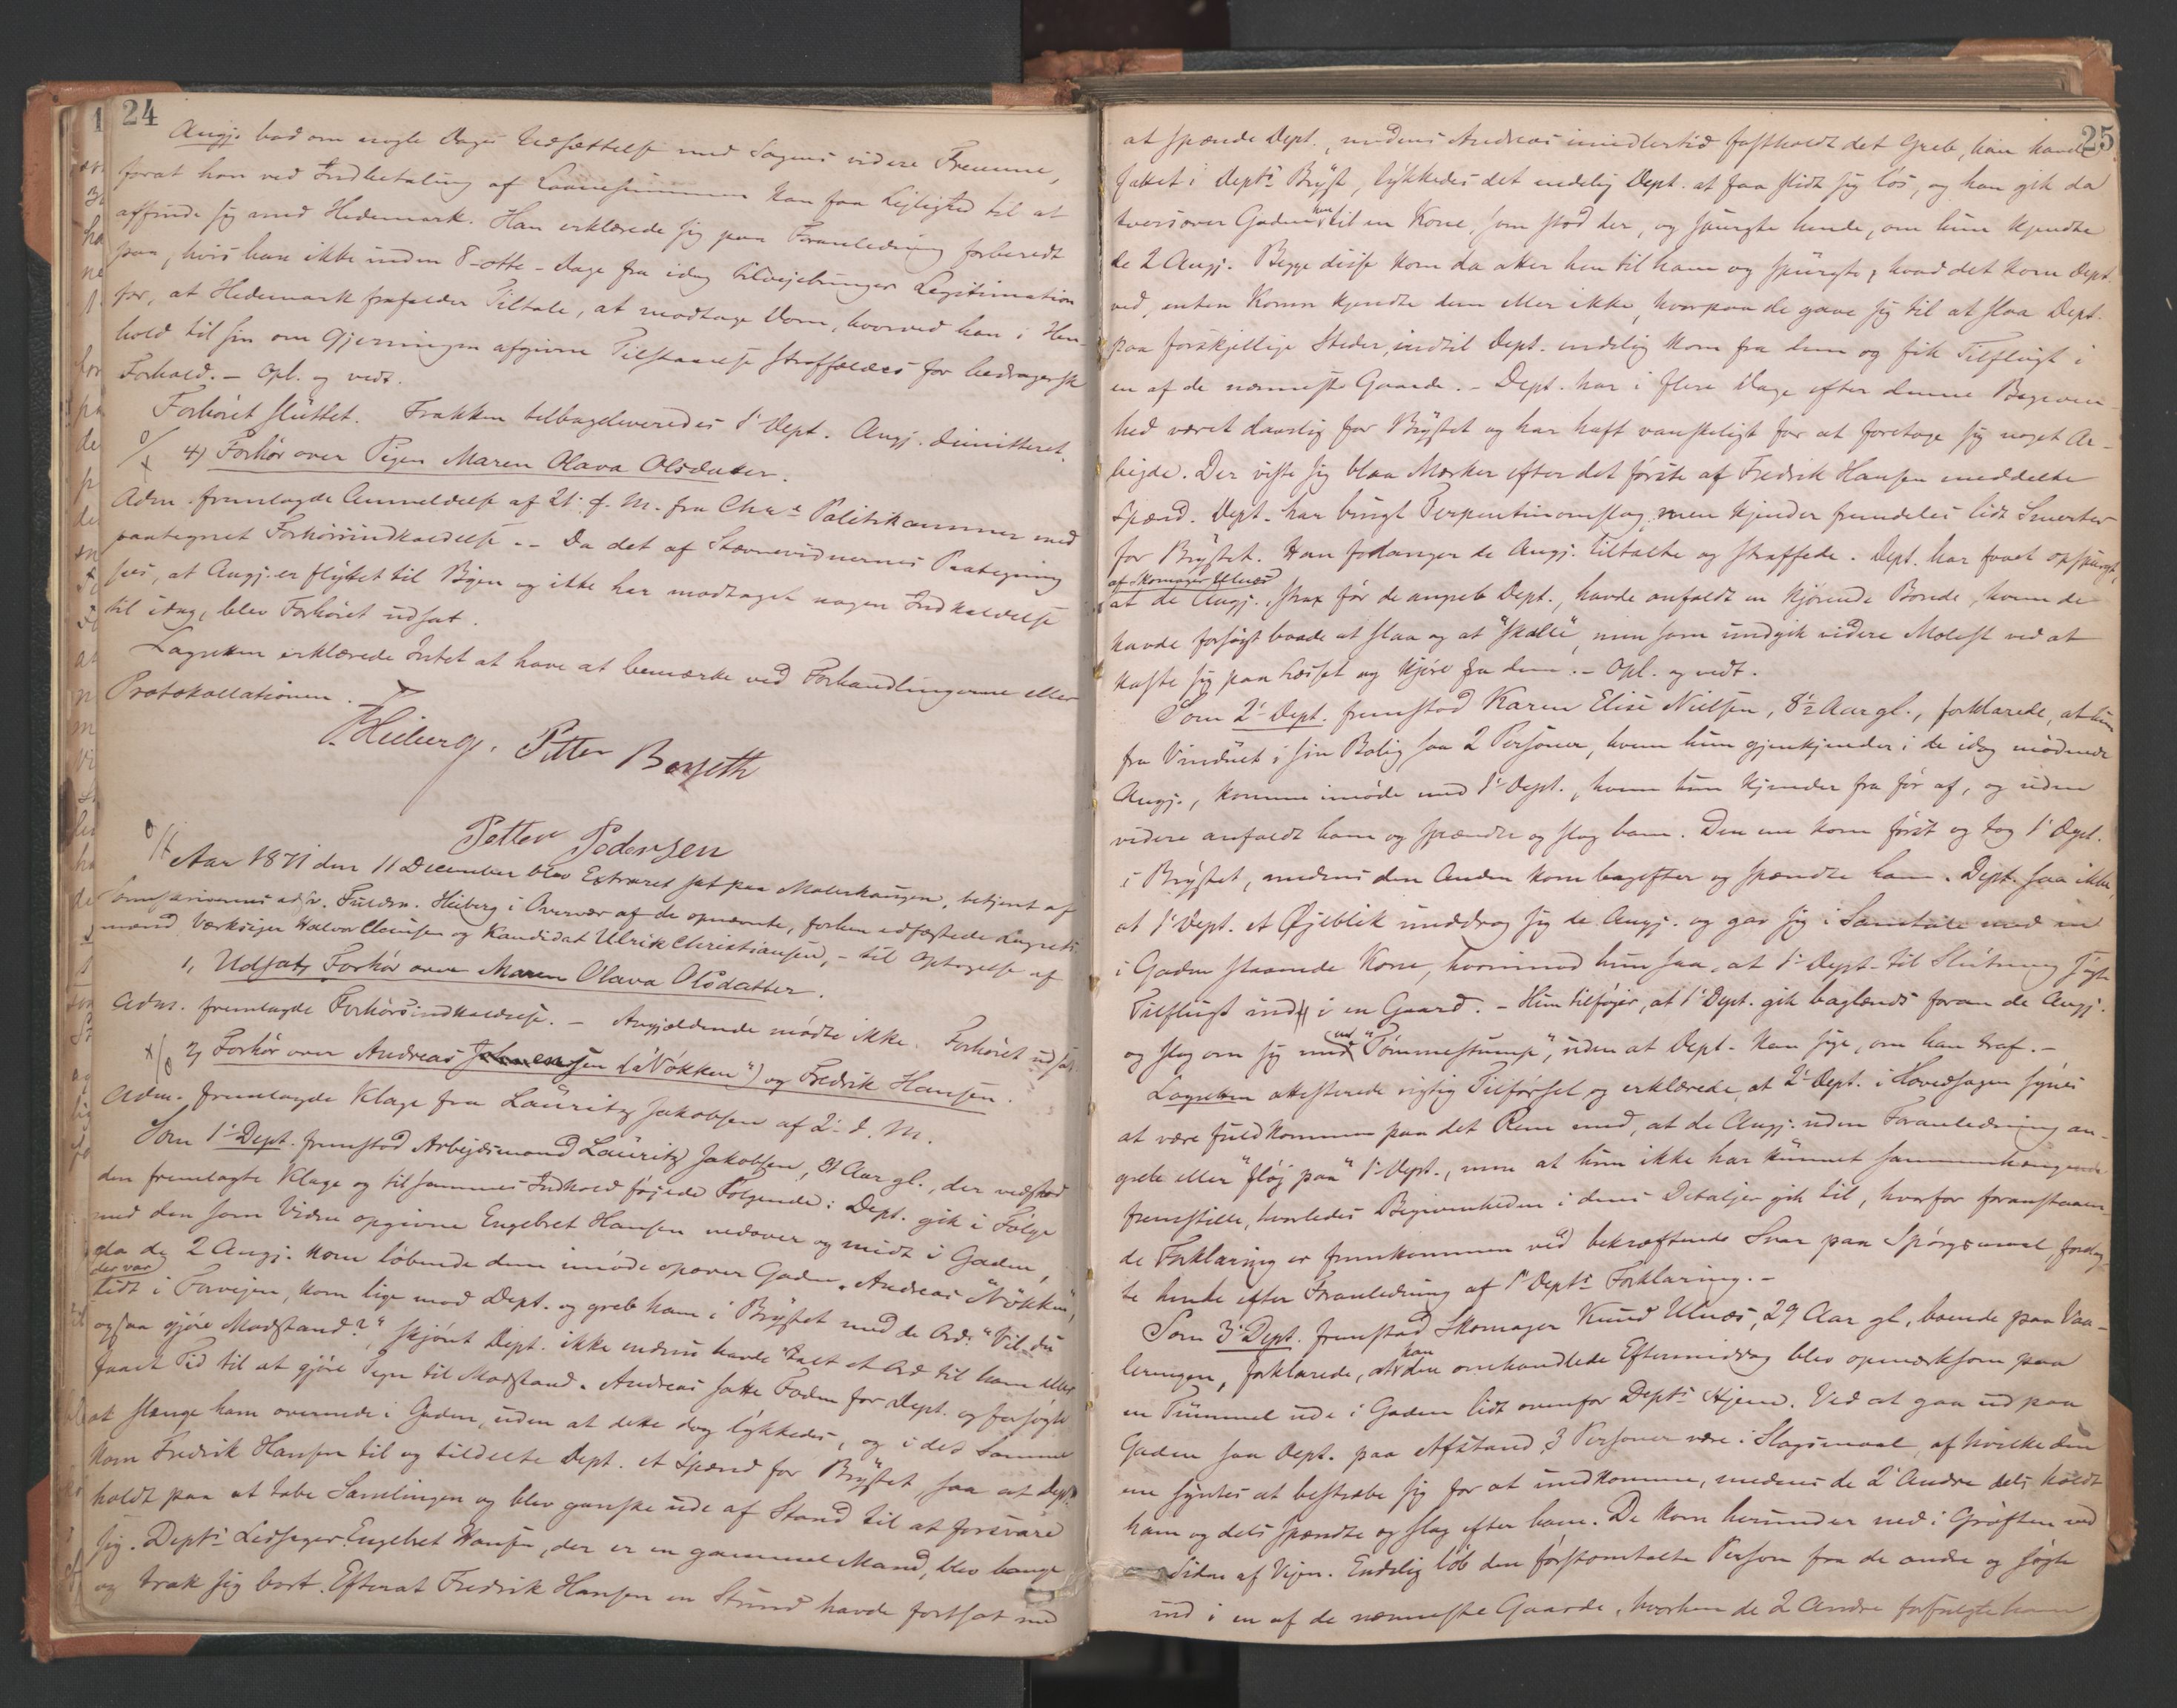 24
Angj. bad om nogle Dages Udsættelse med Sagens videre Fremme,
forat han ved Indbetaling af Laanesummen kan faa Lejlighed til at
affinde sig med Hedemark. Han erklærede sig paa Foranledning forberedt
paa, hvis han ikke inden 8-otte-Dage fra idag tilvejebringer Legitimation
for, at Hedemark frafalder Tiltale, at modtage Dom, hvorved han i Hen-
hold til sin om Gjerningen afgivne Tilstaaelse straffældes for bedragersk
Forhold. – Opl. og vedt.
Forhöret sluttet. Frakken tilbageleveredes 1' Dept. Angj. dimitteret.
4) Forhör over Pigen Maren Olava Olsdatter.
Adm. fremlagde Anmeldelse af 21' f. M. fra Chra Politikammer med
paategnet Forhörsindkaldelse. – Da det af Stævnevidnernes Paategning
sees, at Angj. er flyttet til Byen og ikke har modtaget nogen Indkaldelse
til idag, blev Forhöret udsat.
Lagretten erklærede Intet at have at bemærke ved Forhandlingerne eller
Protokollationen.
Heiberg. Petter Borgeth
Petter Pedersen
Aar 1871 den 11 December blev Extraret sat paa Malerhaugen, betjent af
Sorenskriverens edsv. Fuldm. Heiberg i Overvær af de opnævnte, forhen edfæstede Lagrets-
mænd Værksejer Halvor Clausen og Kandidat Ulrik Christiansen, – til Optagelse af
1, Udsat Forhör over Maren Olava Olsdatter.
Adm. fremlagde Forhörsindkaldelse. – Angjældende mödte ikke. Forhöret udsat.
2, Forhör over Andreas Johannesen („Nökken“) og Fredrik Hansen.
Adm. fremlagde Klage fra Lauritz Jakobsen af 2' d. M.
Som 1' Dept. fremstod Arbejdsmand Lauritz Jakobsen, 31 Aar gl., der vedstod
den fremlagte Klage og til sammes Indhold föjede Fölgende: Dept. gik i Fölge
med den som Vidne opgivne Engebret Hansen nedover og midt i Gaden,
da de 2 Angj. kom löbende dem imöde opover Gaden. Andreas „Nökken“,
der var
lidt i Forvejen, kom lige mod Dept. og greb ham i Brystet med de Ord: „Vil du
ogsaa gjöre Modstand?“, skjönt Dept. ikke endnu havde talt et Ord til ham eller
faaet Tid til at gjöre Tegn til Modstand. Andreas satte Foden for Dept. og forsögte
at slænge ham overende i Gaden, uden at dette dog lykkedes, og i det Samme
kom Fredrik Hansen til og tildelte Dept. et Spænd for Brystet, saa at Dept.
holdt paa at tabe Samlingen og blev ganske ude af Stand til at forsvare
sig. Depts Ledsager Engebret Hansen, der er en gammel Mand, blev bange
og trak sig bort. Efterat Fredrik Hansen en Stund havde fortsat med
25
at spænde Dept., medens Andreas imidlertid fastholdt det Greb, han havde
fattet i Depts Bryst, lykkedes det endelig Dept. at faa slidt sig lös, og han gik da
hen
tversover Gaden til en Kone, som stod der, og spurgte hende, om hun kjendte
de 2 Angj. Begge disse kom da atter hen til ham og spurgte, hvad det kom Dept.
ved, enten Konen kjendte dem eller ikke, hvorpaa de gave sig til at slaa Dept.
paa forskjellige Steder, indtil Dept. endelig kom fra dem og fik Tilflugt i
en af de nærmeste Gaarde. – Dept. har i flere Dage efter denne Begiven-
hed været daarlig for Brystet og har haft vanskeligt for at foretage sig noget Ar-
bejde. Der viste sig blaa Mærker efter det förste af Fredrik Hansen meddelte
Spænd. Dept. har brugt Terpentinomslag, men kjender fremdeles lidt Smerter
for Brystet. Han forlanger de Angj. tiltalte og straffede. Dept. har faaet opspurgt
af Skomager Ulnæs
at de Angj., strax för de angreb Dept., havde anfaldt en kjörende Bonde, hvem de
havde forsögt baade at slaa og at „skalle“, men som undgik videre Molest ved at
kaste sig paa Læsset og kjöre fra dem. – Opl. og vedt.
Som 2' Dept. fremstod Karen Elise Nielsen, 8½ Aar gl., forklarede, at hun
fra Vinduet i sin Bolig saa 2 Personer, hvem hun gjenkjender i de idag mödende
Angj., komme imöde med 1' Dept., hvem hun kjender fra för af, og uden
videre anfaldt ham og spændte og slog ham. Den ene kom först og tog 1' Dept.
i Brystet, medens den Anden kom bagefter og spændte ham. Dept. saa ikke,
at 1' Dept. et Öjeblik unddrog sig de Angj. og gav sig i Samtale med en
i Gaden staaende Kone, hvorimod hun saa, at 1' Dept. til Slutning sögte
Tilflugt ind i en Gaard. – Hun tilföjer, at 1' Dept. gik baglænds foran de Angj.
og slog om sig med „Tömmestump“, uden at Dept. kan sige, om han traf. –
Lagretten attesterede rigtig Tilförsel og erklærede, at 2' Dept. i Hovedsagen synes
at være fuldkommen paa det Rene med, at de Angj. uden Foranledning an-
greb eller „flög paa“ 1' Dept., men at hun ikke har kunnet sammenhængende
fremstille, hvorledes Begivenheden i dens Detaljer gik til, hvorfor foranstaaen-
de Forklaring er fremkommen ved bekræftende Svar paa Spörgsmaal, forelag-
te hende efter Foranledning af 1' Depts Forklaring. –
Som 3' Dept. fremstod Skomager Knud Ulnæs, 29 Aar gl., boende paa Vaa-
han
lerengen, forklarede, at den omhandlede Eftermiddag blev opmærksom paa
en Tummel ude i Gaden lidt ovenfor Depts Hjem. Ved at gaa ud paa
Gaden saa Dept. paa Afstand 3 Personer være i Slagsmaal, af hvilke den
ene syntes at bestræbe sig for at undkomme, medens de 2 Andre dels holdt
ham og dels spændte og slog efter ham. De kom herunder ned i Gröften ved
Siden af Vejen. Endelig löb den förstomtalte Person fra de andre og sögte
ind i en af de nærmeste Gaarde, hvorhen de 2 Andre forfulgte ham